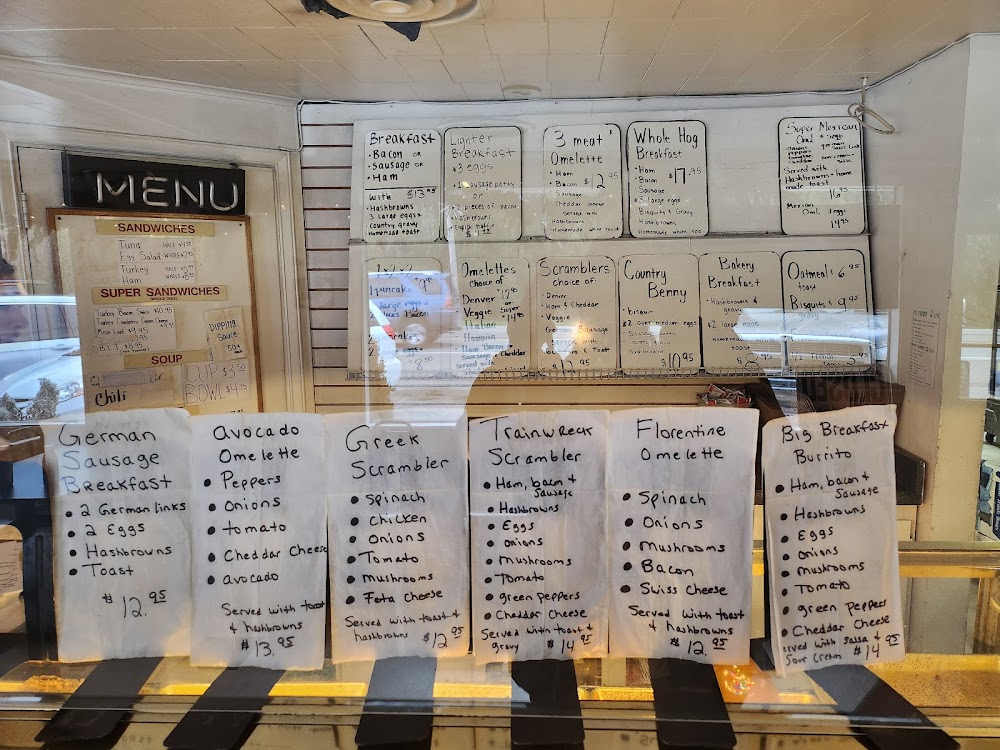 MENU
SANDWICHES
Tuna HALF $4.50
Egg Salad
Turkey
Ham
SUPER SANDWICHES
Turkey Bacon Swiss $10.95
Meat Loaf $9.95
DIPPING
SAUCE
50¢
SOUP
CUP $3.50
BOWL $4.75
Chili
Breakfast
• Bacon or
• Sausage or
• Ham
with $13.95
• Hashbrowns
3 large eggs
country gravy
Homemade toast
Lighter
Breakfast
3 eggs
1 sausage patty
or
2 pieces of bacon
Hashbrowns
English muffin
3 meat
Omelette
• Ham
• Bacon $12.95
• Sausage
Cheddar cheese
Served with
Hashbrowns
Homemade white toast
Whole Hog
Breakfast
• Ham
Bacon $17.95
Sausage
3 large eggs
Biscuits & Gravy
Hashbrowns
Homemade white toast
Super Mexican
Oml. 3 eggs
Served with
Hashbrowns & home
made toast
16.95
Mexican
Oml. 3 eggs
14.95
2x2x2
Pancake
large eggs
Omelettes
choice of
Denver
Veggie
Italian
Hawaiin
Ham Bacon
Sausage
Cheddar
Served with
Scramblers
choice of:
• Denver
• Ham & Cheddar
• Veggie
Sausage
Served with
Toast
Country
Benny
• bisquit
• 2 over medium eggs
$10.95
Bakery
Breakfast
• Hashbrowns &
gravy
• 2 large eggs
Oatmeal $6.95
toast
Bisquits & 9.95
gravy
German
Sausage
Breakfast
• 2 German links
• 2 Eggs
• Hashbrowns
• Toast
$12.95
Avocado
Omelette
• Peppers
• Onions
• tomato
• Cheddar Cheese
• avocado
Served with toast
& hashbrowns
$13.95
Greek
Scrambler
• Spinach
• Chicken
• Onions
• Tomato
• mushrooms
• Feta Cheese
Served with toast &
hashbrowns $12.95
Trainwreck
Scrambler
• Ham, bacon &
Sausage
• Hashbrowns
• Eggs
• onions
• mushrooms
• Tomato
• green peppers
• Cheddar Cheese
Served with toast &
gravy $14.95
Florentine
Omelette
• Spinach
• Onions
• mushrooms
• Bacon
• Swiss Cheese
Served with toast
& hashbrowns
$12.95
Big Breakfast
Burrito
• Ham, bacon &
Sausage
• Hashbrowns
• Eggs
• onions
• mushrooms
• Tomato
• green Peppers
• Cheddar Cheese
served with Salsa &
Sour Cream $14.95